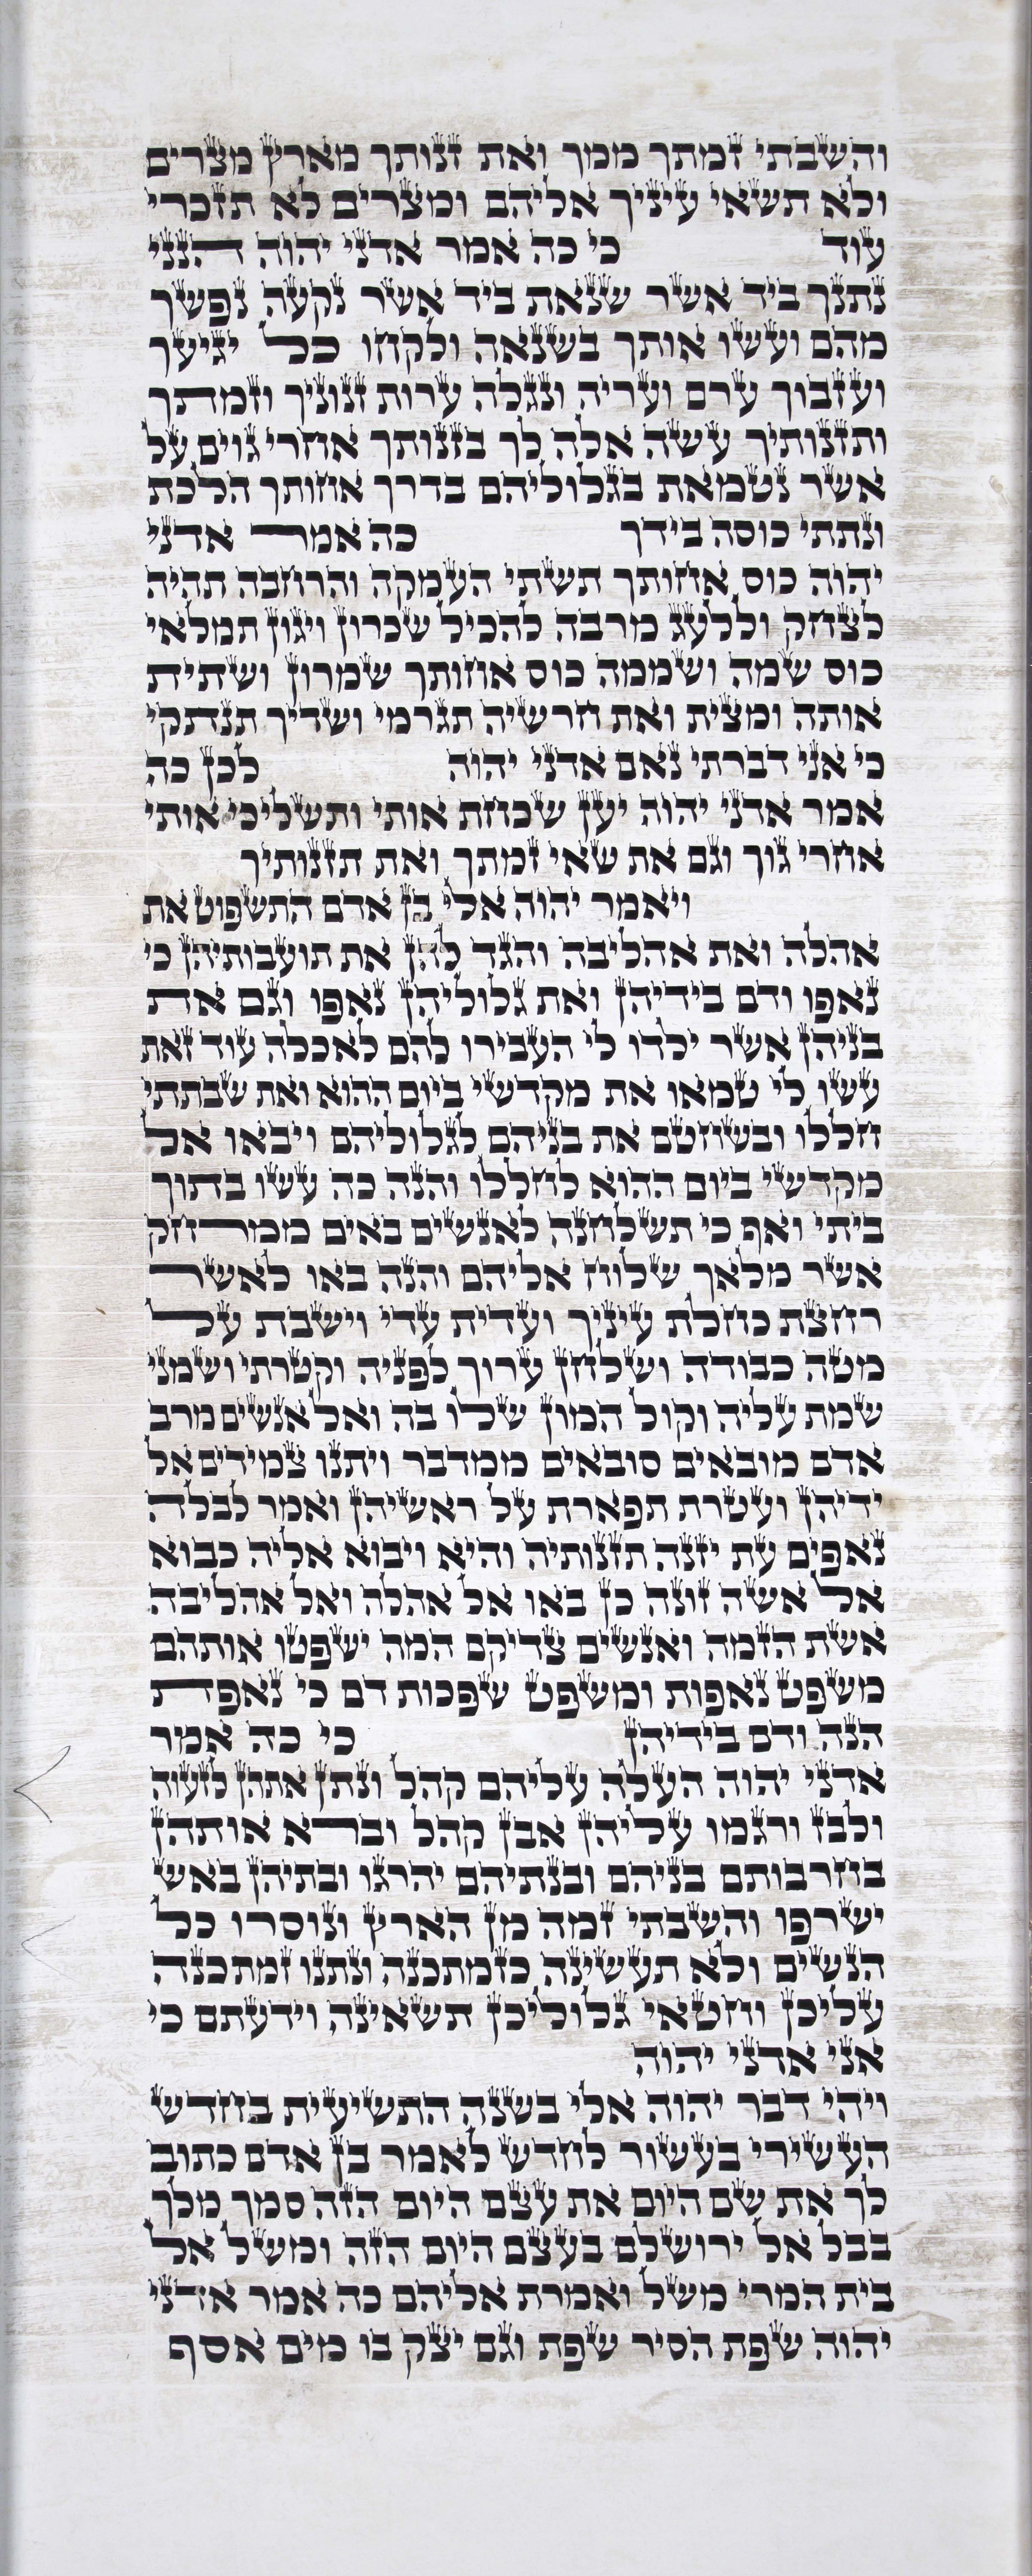 והשבתי זמתך ממך ואת זנותך מארץ מצרים
ולא תשאי עיניך אליהם ומצרים לא תזכרי
עוד כי כה אמר אדני יהוה הנני
נתנך ביד אשר שנאת ביד אשר נקעה נפשך
מהם ועשו אותך בשנאה ולקחו כל יגיעך
ועזבוך ערם ועריה ונגלה ערות זנוניך וזמתך
ותזנותיך עשה אלה לך בזנותך אחרי גוים על
אשר נטמאת בגלוליהם בדרך אחותך הלכת
ונתתי כוסה בידך כה אמר אדני
יהוה כוס אחותך תשתי העמקה והרחבה תהיה
לצחק וללעג מרבה להכיל שכרון ויגון תמלאי
כוס שמה ושממה כוס אחותך שמרון ושתית
אותה ומצית ואת חרשיה תגרמי ושדיך תנתקי
כי אני דברתי נאם אדני יהוה לכן כה
אמר אדני יהוה יען שכחת אותי ותשליכי אותי
אחרי גוך וגם את שאי זמתך ואת תזנותיך
ויאמר יהוה אלי בן אדם התשפוט את
אהלה ואת אהליבה והגד להן את תועבותיהן כי
נאפו ודם בידיהן ואת גלוליהן נאפו וגם את
בניהן אשר ילדו לי העבירו להם לאכלה עוד זאת
עשו לי טמאו את מקדשי ביום ההוא ואת שבתתי
חללו ובשחטם את בניהם לגלוליהם ויבאו אל
מקדשי ביום ההוא לחללו והנה כה עשו בתוך
ביתי ואף כי תשלחנה לאנשים באים ממרחק
אשר מלאך שלוח אליהם והנה באו לאשר
רחצת כחלת עיניך ועדית עדי וישבת על
מטה כבודה ושלחן ערוך לפניה וקטרתי ושמני
שמת עליה וקול המון שלו בה ואל אנשים מרב
אדם מובאים סובאים ממדבר ויתנו צמידים אל
ידיהן ועטרת תפארת על ראשיהן ואמר לבלה
נאפים עת יזנה תזנותיה והיא ויבוא אליה כבוא
אל אשה זונה כן באו אל אהלה ואל אהליבה
אשת הזמה ואנשים צדיקם המה ישפטו אותהם
משפט נאפות ומשפט שפכות דם כי נאפת
הנה ודם בידיהן כי כה אמר
אדני יהוה העלה עליהם קהל ונתן אתהן לזעוה
ולבז ורגמו עליהן אבן קהל וברא אותהן
בחרבותם בניהם ובנתיהם יהרגו ובתיהן באש
ישרפו והשבתי זמה מן הארץ ונוסרו כל
הנשים ולא תעשינה כזמתכנה ונתנו זמתכנה
עליכן וחטאי גלוליכן תשאינה וידעתם כי
אני אדני יהוה
ויהי דבר יהוה אלי בשנה התשיעית בחדש
העשירי בעשור לחדש לאמר בן אדם כתוב
לך את שם היום את עצם היום הזה סמך מלך
בבל אל ירושלם בעצם היום הזה ומשל אל
בית המרי משל ואמרת אליהם כה אמר אדני
יהוה שפת הסיר שפת וגם יצק בו מים אסף